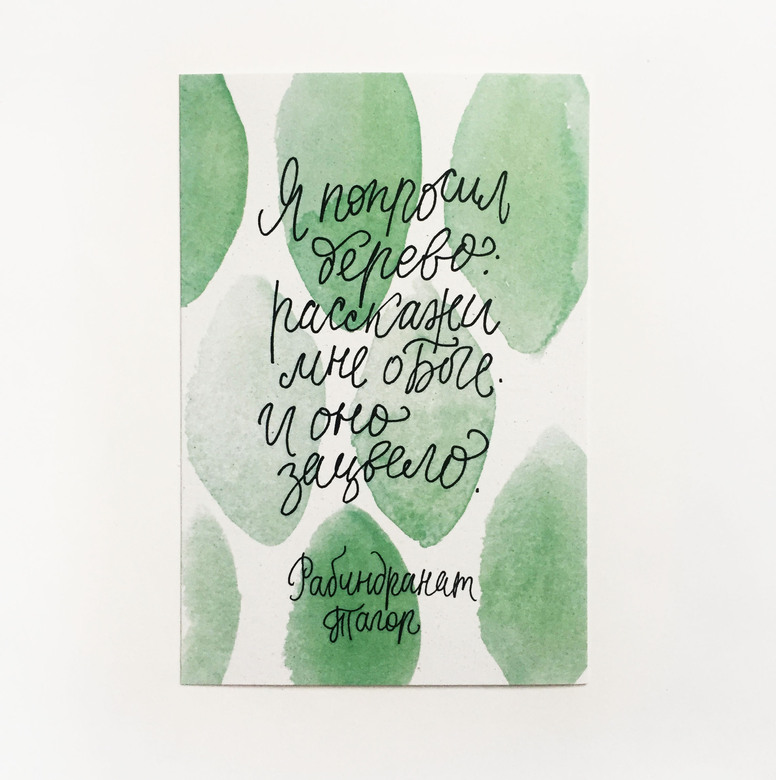 Я попросил
дерево:
расскажи
мне о Боге.
И оно
зацвело.
Рабиндранат
Тагор